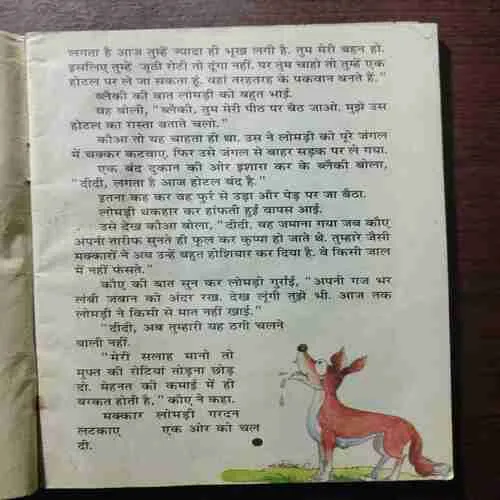 लगता है आज तुम्हें ज्यादा ही भूख लगी है. तुम मेरी बहन हो.
इसलिए तुम्हें जूठी रोटी तो दूंगा नहीं. पर तुम चाहो तो तुम्हें एक
होटल पर ले जा सकता हूं. वहां तरहतरह के पकवान बनते हैं."
ब्लैकी की बात लोमड़ी को बहुत भाई.
वह बोली, "ब्लैकी, तुम मेरी पीठ पर बैठ जाओ. मुझे उस
होटल का रास्ता बताते चलो."
कौआ तो यह चाहता ही था. उस ने लोमड़ी को पूरे जंगल
में चक्कर कटवाए. फिर उसे जंगल से बाहर सड़क पर ले गया.
एक बंद दुकान की ओर इशारा कर के ब्लैकी बोला,
"दीदी, लगता है आज होटल बंद है."
इतना कह कर वह फुर्र से उड़ा और पेड़ पर जा बैठा.
लोमड़ी थकहार कर हांफती हुई वापस आई.
उसे देख कौआ बोला, "दीदी, वह जमाना गया जब कौए
अपनी तारीफ सुनते ही फूल कर कुप्पा हो जाते थे. तुम्हारे जैसी
मक्कारों ने अब उन्हें बहुत होशियार कर दिया है. वे किसी जाल
में नहीं फंसते."
कौए की बात सुन कर लोमड़ी गुर्राई, "अपनी गज भर
लंबी जबान को अंदर रख. देख लूंगी तुझे भी. आज तक
लोमड़ी ने किसी से मात नहीं खाई."
"दीदी, अब तुम्हारी यह ठगी चलने
वाली नहीं.
"मेरी सलाह मानो तो
मुफ्त की रोटियां तोड़ना छोड़
दो. मेहनत की कमाई में ही
बरकत होती है," कौए ने कहा.
मक्कार लोमड़ी गरदन
लटकाए एक ओर को चल
दी.